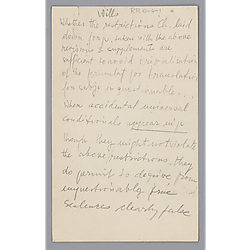 Wills
Whether the restrictions Ch. laid
down for p., taken with the above
requirements & supplements are
sufficient to avoid trivialisation
of the formula for translation
for is questionable...
When accidental universal
conditionals appear in p
though they might not violate
the above restrictions, they
do permit to derive from
unquestionably true
sentences clearly false